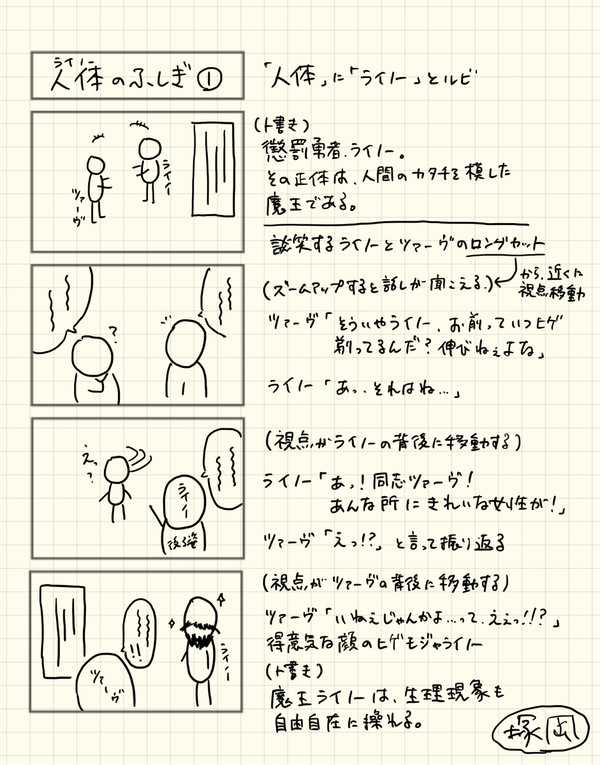 人体のふしぎ①
ライノー
「人体」に「ライノー」とルビ
(ト書き)
懲罰勇者、ライノー。
その正体は、人間のカタチを模した
魔王である。
談笑するライノーとツァーヴのロングカット
から、近くに
視点移動
ツァーヴ
ライノー
(ズームアップすると話し声が聞こえる。)
ツァーヴ「そういやライノー、お前っていつヒゲ
剃ってるんだ?伸びねぇよな」
ライノー「あっ..それはね...」
?
(視点がライノーの背後に移動する)
ライノー「あっ!同志ツァーヴ!
あんな所にきれいな女性が!」
ツァーヴ「えっ!?」と言って振り返る
えっ?
ライノー
後ろ姿
(視点がツァーヴの背後に移動する)
ツァーヴ「いねぇじゃんかよ...って、ええっ!!?」
得意気な顔のヒゲモジャライノー
(ト書き)
魔王ライノーは、生理現象も
自由自在に操れる。
!!
ツァーヴ
ライノー
塚岡